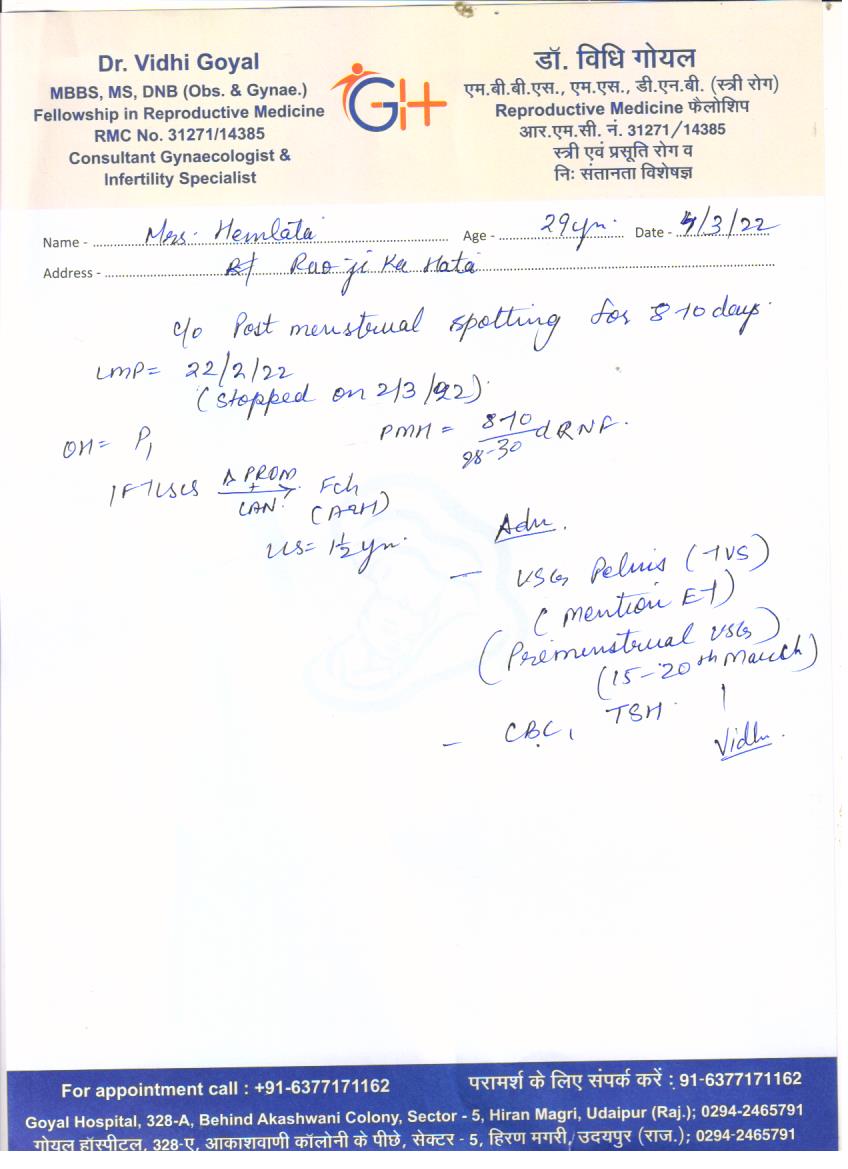 Dr. Vidhi Goyal
MBBS, MS, DNB (Obs. & Gynae.)
Fellowship in Reproductive Medicine
RMC No. 31271/14385
Consultant Gynaecologist &
Infertility Specialist
GH
डॉ. विधि गोयल
एम.बी.बी.एस., एम.एस., डी.एन.बी. (स्त्री रोग)
Reproductive Medicine फैलोशिप
आर.एम.सी. नं. 31271/14385
स्त्री एवं प्रसूति रोग व
निः संतानता विशेषज्ञ
Name - Mrs. Hemlata Age - 29yr. Date - 4/3/22
Address - Rao ji Ka Hata
c/o Post menstrual spotting for 8-10 days.
LMP = 22/2/22
(Stopped on 2/3/22)
OH = P1 PMH = 8-10/28-30 d RNF.
1 FT LSCS PROM Fch
US = 1½ yr.
Adv.
- USG Pelvis (TVS)
(Mention ET)
(Premenstrual USG)
(15-20th March)
- CBC, TSH
Vidhi
For appointment call : +91-6377171162
परामर्श के लिए संपर्क करें : 91-6377171162
Goyal Hospital, 328-A, Behind Akashwani Colony, Sector - 5, Hiran Magri, Udaipur (Raj.); 0294-2465791
गोयल हॉस्पीटल, 328-ए, आकाशवाणी कॉलोनी के पीछे, सेक्टर - 5, हिरण मगरी, उदयपुर (राज.); 0294-2465791